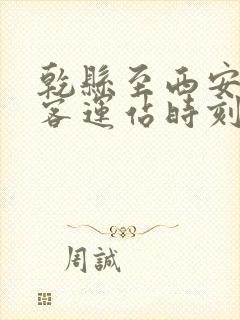 乾縣至西安
客運佔時刻
周誠